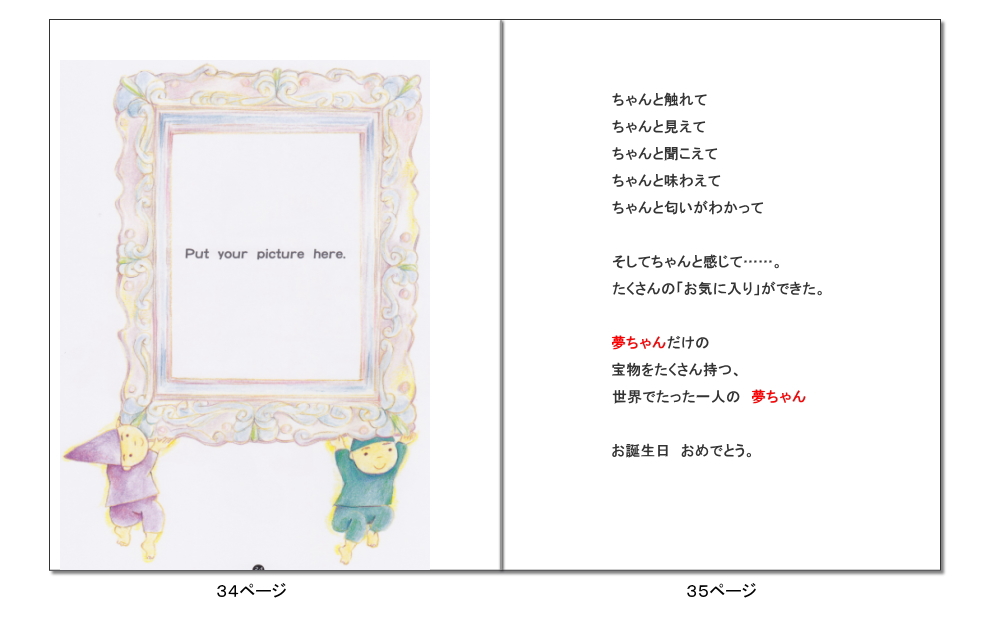 Put your picture here.
ちゃんと触れて
ちゃんと見えて
ちゃんと聞こえて
ちゃんと味わえて
ちゃんと匂いがわかって
そしてちゃんと感じて……。
たくさんの「お気に入り」ができた。
夢ちゃんだけの
宝物をたくさん持つ、
世界でたった一人の　夢ちゃん
お誕生日　おめでとう。
34ページ
35ページ